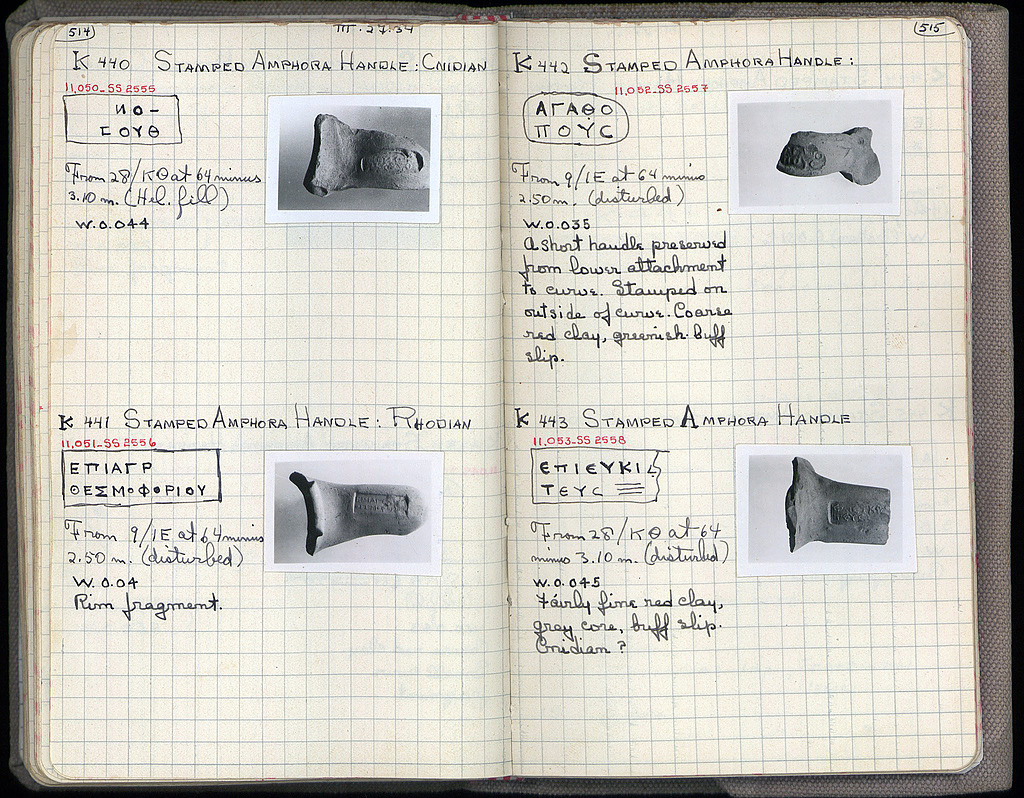 514
III·27·34
K 440 STAMPED AMPHORA HANDLE: CNIDIAN
11,050-SS 2555
ΝΟ-
ΣΟΥΘ
From 28/ΚΘ at 64 minus
3.10 m. (Hel. fill)
W. 0.044
K 441 STAMPED AMPHORA HANDLE: RHODIAN
11,051-SS 2556
ΕΠΙΑΓΡ
ΘΕΣΜΟΦΟΡΙΟΥ
From 9/ΙΕ at 64 minus
2.50 m. (disturbed)
W. 0.04
Rim fragment.
515
K 442 STAMPED AMPHORA HANDLE:
11,052-SS 2557
ΑΓΑΘΟ
ΠΟΥC
From 9/ΙΕ at 64 minus
2.50 m. (disturbed)
W. 0.035
A short handle preserved
from lower attachment
to curve. Stamped on
outside of curve. Coarse
red clay, greenish-buff
slip.
K 443 STAMPED AMPHORA HANDLE
11,053-SS 2558
ΕΠΙΕΥΚΙ
ΤΕΥC
From 28/ΚΘ at 64
minus 3.10 m. (disturbed)
W. 0.045
Fairly fine red clay,
grey core, buff slip.
Cnidian?